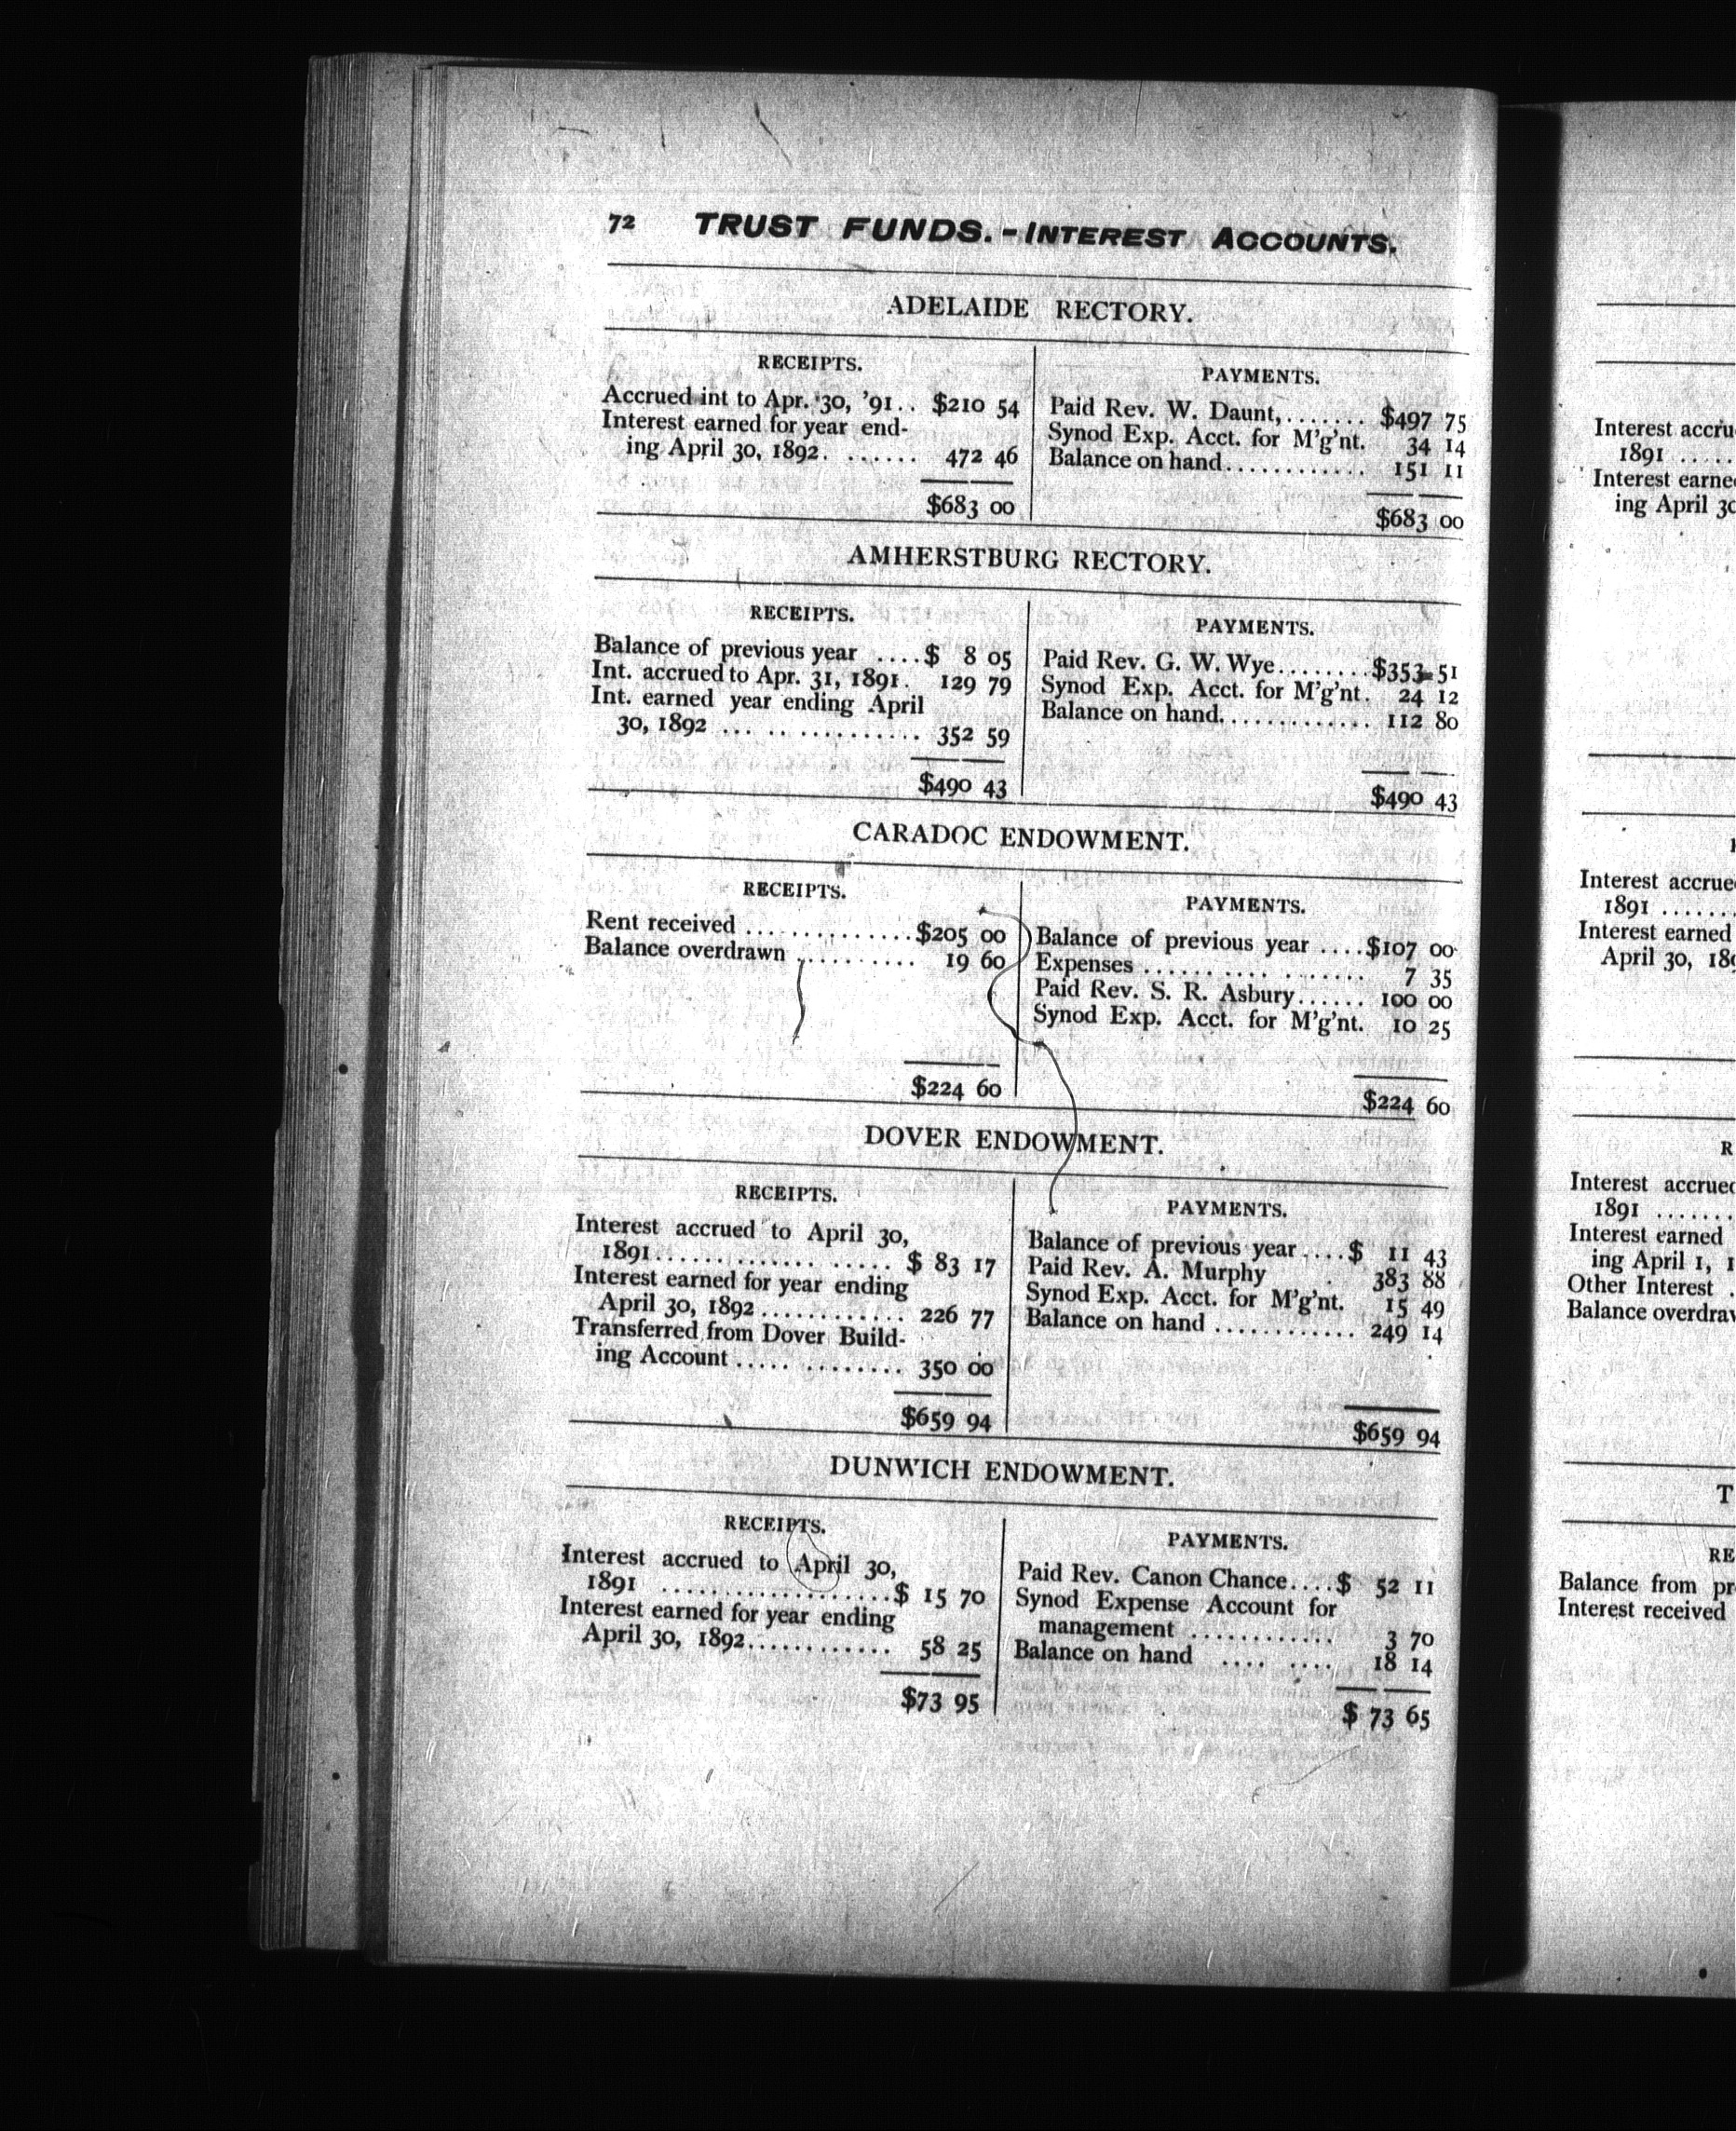 72 TRUST FUNDS.-INTEREST ACCOUNTS.
ADELAIDE RECTORY.
RECEIPTS.
Accrued int to Apr. 30, '91.. $210 54
Interest earned for year end-
ing April 30, 1892. ...... 472 46
$683 00
PAYMENTS.
Paid Rev. W. Daunt,....... $497 75
Synod Exp. Acct. for M'g'nt. 34 14
Balance on hand............ 151 11
$683 00
AMHERSTBURG RECTORY.
RECEIPTS.
Balance of previous year ....$ 8 05
Int. accrued to Apr. 31, 1891. 129 79
Int. earned year ending April
30, 1892 ... .. ............ 352 59
$490 43
PAYMENTS.
Paid Rev. G. W. Wye........$353 51
Synod Exp. Acct. for M'g'nt. 24 12
Balance on hand............. 112 80
$490 43
CARADOC ENDOWMENT.
RECEIPTS.
Rent received ... ............$205 00
Balance overdrawn .......... 19 60
$224 60
PAYMENTS.
Balance of previous year ....$107 00
Expenses .......... ....... 7 35
Paid Rev. S. R. Asbury...... 100 00
Synod Exp. Acct. for M'g'nt. 10 25
$224 60
DOVER ENDOWMENT.
RECEIPTS.
Interest accrued to April 30,
1891............. ..... $ 83 17
Interest earned for year ending
April 30, 1892............ 226 77
Transferred from Dover Build-
ing Account ..... ........ 350 00
$659 94
PAYMENTS.
Balance of previous year ....$ 11 43
Paid Rev. A. Murphy . 383 88
Synod Exp. Acct. for M'g'nt. 15 49
Balance on hand ............ 249 14
$659 94
DUNWICH ENDOWMENT.
RECEIPTS.
Interest accrued to April 30,
1891 ....................$ 15 70
Interest earned for year ending
April 30, 1892............ 58 25
$73 95
PAYMENTS.
Paid Rev. Canon Chance....$ 52 11
Synod Expense Account for
management ............ 3 70
Balance on hand .... .... 18 14
$ 73 65
Interest accru
1891 .....
Interest earne
ing April 30
Interest accrue
1891 ......
Interest earned
April 30, 189
R
Interest accrued
1891 .......
Interest earned
ing April 1, 1
Other Interest .
Balance overdraw
T
RE
Balance from pr
Interest received